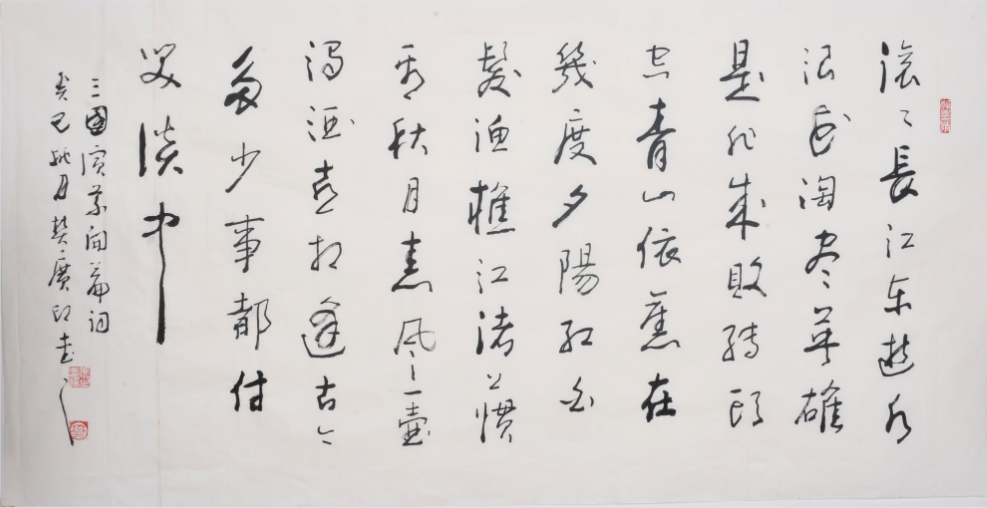 滚〻長江东逝水
浪花淘尽英雄
是非成败转头
空青山依舊在
幾度夕陽红白
髮渔樵江渚上惯
看秋月春风一壶
浊酒喜相逢古今
多少事都付
笑谈中
三國演义開篇词
癸巳桃月樊廣印书